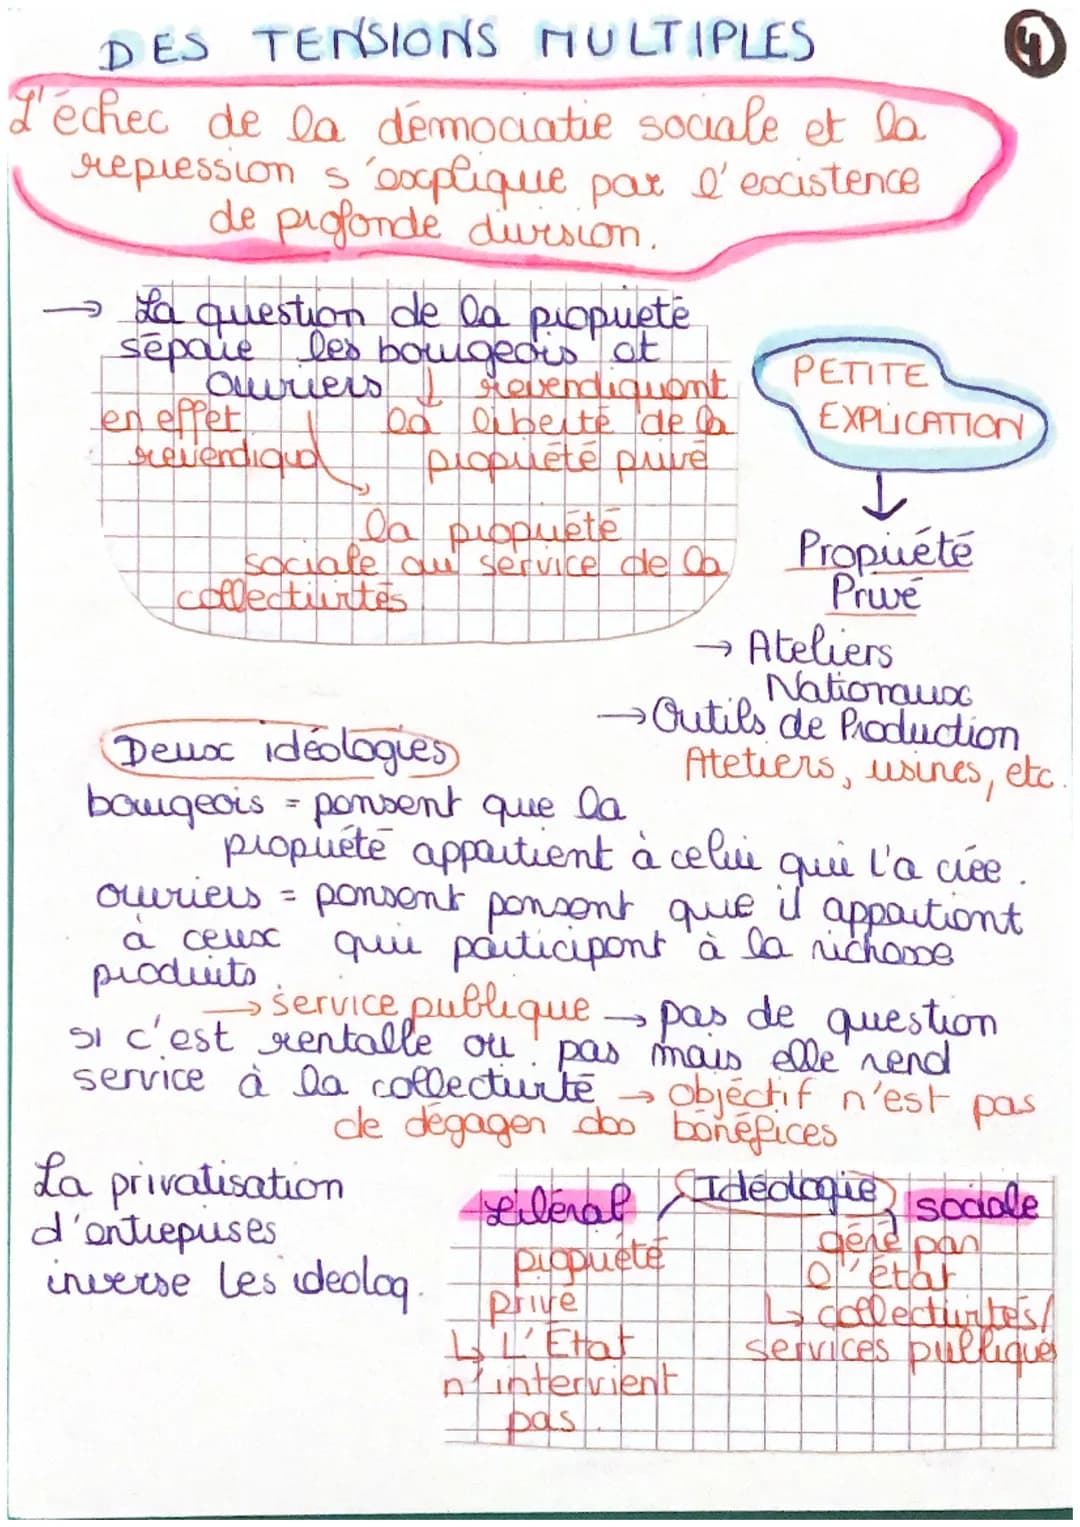 DES TENSIONS MULTIPLES
4
L'échec de la démociatie sociale et la
repression s'explique par l'existence
de profonde division.
→ La question de la propriété
sépare les bourgeois et
ouvriers ↓ revendiquent
en effet la liberté de la
revendiqud propriété privé
la propriété
sociale au service de la
collectivités
PETITE
EXPLICATION
↓
Propriété
Privé
→ Ateliers
Nationaux
→ Outils de Production
Atetiers, usines, etc.
Deux idéologies
bourgeois = pensent que la
propriété appartient à celui qui l'a créé.
ouvriers = pensent pensent que il appartient
à ceux qui participent à la richesse
produits.
→ service publique → pas de question
si c'est rentalle ou pas mais elle rend
service à la collectivité → Objéctif n'est pas
de dégager des bénéfices
La privatisation
d'entreprises
inverse les idéolog.
Idéologie
Libéral / sociale
propriété
privé
↳ L'État
n'intervient
pas.
géré par
l'état
↳ collectivités/
services publiques